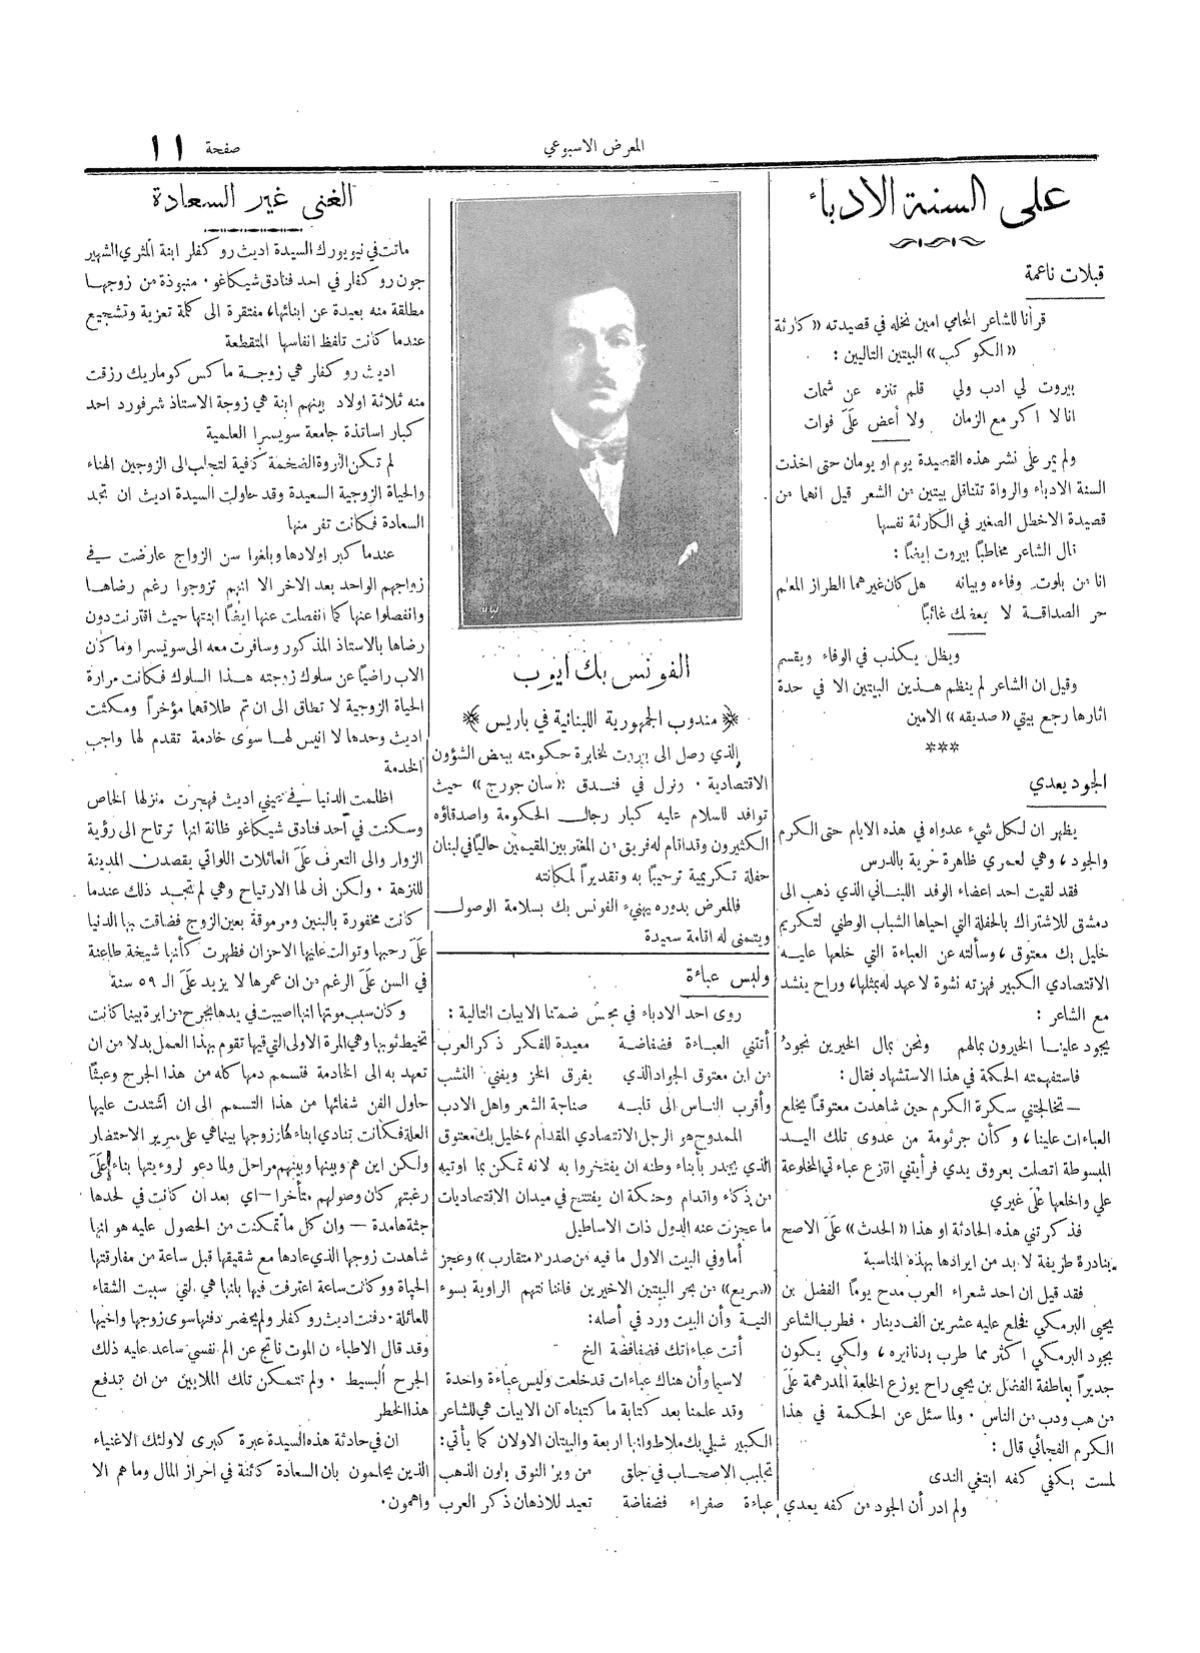 المعرض الاسبوعي
صفحة ١١
على السنة الأدباء
قبلات ناعمة
قرأنا للشاعر المحامي امين نخله في قصيدته «كارثة
«الكوكب» البيتين التاليين :
بيروت لي ادب ولي قلم تنزه عن شمات
انا لا اكر مع الزمان ولا أعض علَى فوات
ولم يمر على نشر هذه القصيدة يوم او يومان حتى اخذت
السنة الادباء والرواة تتناقل بيتين من الشعر قيل انهما من
قصيدة الاخطل الصغير في الكارثة نفسها
قال الشاعر مخاطبًا بيروت ايضًا :
انا من بلوت وفاءه وبيانه هل كان غيرهما الطراز المعلم
حر الصداقة لا يعضك غائبًا
ويظل يكذب في الوفاء ويقسم
وقيل ان الشاعر لم ينظم هذين البيتين الا في حدة
اثارها رجع بيتي «صديقه» الامين
***
الجود يعدي
يظهر ان لكل شيء عدواه في هذه الايام حتى الكرم
والجود ، وهي لعمري ظاهرة حرية بالدرس
فقد لقيت احد اعضاء الوفد اللبناني الذي ذهب الى
دمشق للاشتراك بالحفلة التي احياها الشباب الوطني لتكريم
خليل بك معتوق ، وسألته عن العباءة التي خلعها عليه
الاقتصادي الكبير فهزته نشوة لا عهد له بمثلها، وراح ينشد
مع الشاعر :
يجود علينا الخيرون بمالهم ونحن بمال الخيرين نجودُ
فاستفهمته الحكمة في هذا الاستشهاد فقال :
— تخالجتني سكرة الكرم حين شاهدت معتوقًا يخلع
العباءات علينا ، وكأن جرثومة من عدوى تلك اليد
المبسوطة اتصلت بعروق يدي فرأيتني انتزع عباءتي المخلوعة
علي واخلعها علَى غيري
فذكرتني هذه الحادثة او هذا «الحدث» علَى الاصح
بنادرة طريفة لا بد من ايرادها بهذه المناسبة
فقد قيل ان احد شعراء العرب مدح يومًا الفضل بن
يحيى البرمكي فخلع عليه عشرين الف دينار . فطرب الشاعر
بجود البرمكي اكثر مما طرب بدنانيره ، ولكي يكون
جديرًا بعاطفة الفضل بن يحيى راح يوزع الخلعة المدرهمة علَى
من هب ودب من الناس . ولما سئل عن الحكمة في هذا
الكرم الفجائي قال :
لمست بكفي كفه ابتغي الندى
ولم ادر أن الجود من كفه يعدي
الفونس بك ايوب
مندوب الجمهورية اللبنانية في باريس
الذي وصل الى بيروت لمخابرة حكومته ببعض الشؤون
الاقتصادية . ونزل في فندق «سان جورج» حيث
توافد للسلام عليه كبار رجال الحكومة واصدقاؤه
الكثيرون وقد اقام له فريق من المغتربين المقيمين حاليًا في لبنان
حفلة تكريمية ترحيبًا به وتقديرًا لمكانته
فالمعرض بدوره يهنيء الفونس بك بسلامة الوصول
ويتمنى له اقامة سعيدة
وليس عباءة
روى احد الادباء في مجلس ضمنا الابيات التالية :
أتتني العباءة فضفاضة معيدة للفكر ذكر العرب
من ابن معتوق الجواد الذي يفرق الخز ويفني النشب
وأقرب الناس الى قلبه صناجة الشعر واهل الادب
الممدوح هو الرجل الاقتصادي المقدام ، خليل بك معتوق
الذي يجدر بأبناء وطنه ان يفتخروا به لانه تمكن بما اوتيه
من ذكاء واقدام وحنكة ان يفتتح في ميدان الاقتصاديات
ما عجزت عنه الدول ذات الاساطيل
أما وفي البيت الاول ما فيه من صدر «متقارب» وعجز
«سريع» من بحر البيتين الاخيرين فاننا نتهم الراوية بسوء
النية وأن البيت ورد في أصله :
أتت عباءاتك فضفاضة الخ
لاسيما وأن هناك عباءات قد خلعت وليس عباءة واحدة
وقد علمنا بعد كتابة ما كتبناه ان الابيات هي للشاعر
الكبير شبلي بك ملاط وانها اربعة والبيتان الاولان كما يأتي :
تجلبب الاصحاب في جلق من وبر النوق بلون الذهب
عباءة صفراء فضفاضة تعيد للاذهان ذكر العرب
الغنى غير السعادة
ماتت في نيويورك السيدة اديث روكفلر ابنة المثري الشهير
جون روكفلر في احد فنادق شيكاغو . منبوذة من زوجها
مطلقة منه بعيدة عن ابنائها، مفتقرة الى كلمة تعزية وتشجيع
عندما كانت تلفظ انفاسها المتقطعة
اديث روكفلر هي زوجة ماكس كورماريك رزقت
منه ثلاثة اولاد بينهم ابنة هي زوجة الاستاذ شرفورد احد
كبار اساتذة جامعة سويسرا العلمية
لم تكن الثروة الضخمة كافية لتجلب الى الزوجين الهناء
والحياة الزوجية السعيدة وقد حاولت السيدة اديث ان تجد
السعادة فكانت تفر منها
عندما كبر اولادها وبلغوا سن الزواج عارضت في
زواجهم الواحد بعد الاخر الا انهم تزوجوا رغم رضاها
وانفصلوا عنها كما انفصلت عنها ايضًا ابنتها حيث اقترنت دون
رضاها بالاستاذ المذكور وسافرت معه الى سويسرا وما كان
الاب راضيًا عن سلوك زوجته هذا السلوك فكانت مرارة
الحياة الزوجية لا تطاق الى ان تم طلاقهما مؤخرًا ومكثت
اديث وحدها لا انيس لها سوى خادمة تقدم لها واجب
الخدمة
اظلمت الدنيا في عيني اديث فهجرت منزلها الخاص
وسكنت في أحد فنادق شيكاغو ظانة انها ترتاح الى رؤية
الزوار والى التعرف علَى العائلات اللواتي يقصدن المدينة
للنزهة . ولكن انى لها الارتياح وهي لم تجد ذلك عندما
كانت مخفورة بالبنين ومرموقة بعين الزوج فضاقت بها الدنيا
علَى رحبها وتوالت عليها الاحزان فظهرت كأنها شيخة طاعنة
في السن علَى الرغم من ان عمرها لا يزيد علَى الـ ٥٩ سنة
وكان سبب موتها انها اصيبت في يدها بجرح من ابرة بينما كانت
تخيط ثوبها وهي المرة الاولى التي فيها تقوم بهذا العمل بدلا من ان
تعهد به الى الخادمة فتسمم دمها كله من هذا الجرح وعبثًا
حاول الفن شفائها من هذا التسمم الى ان اشتدت عليها
العلة فكانت تنادي ابناءها وزوجها بينما هي على سرير الاحتضار
ولكن اين هم وبينها وبينهم مراحل ولما دعو لروءيتها بناء علَى
رغبتهم كان وصولهم متأخرا — اي بعد ان كانت في لحدها
جثة هامدة — وان كل ما تمكنت من الحصول عليه هو انها
شاهدت زوجها الذي عادها مع شقيقها قبل ساعة من مفارقتها
الحياة ووكانت ساعة اعترفت فيها بانها هي التي سببت الشقاء
للعائلة . دفنت اديث روكفلر ولم يحضر دفنها سوى زوجها واخيها
وقد قال الاطباء ن الموت ناتج عن الم نفسي ساعد عليه ذلك
الجرح البسيط . ولم تتمكن تلك الملايين من ان تدفع
هذا الخطر
ان في حادثة هذه السيدة عبرة كبرى لاولئك الاغنياء
الذين يحلمون بان السعادة كائنة في احراز المال وما هم الا
واهمون.